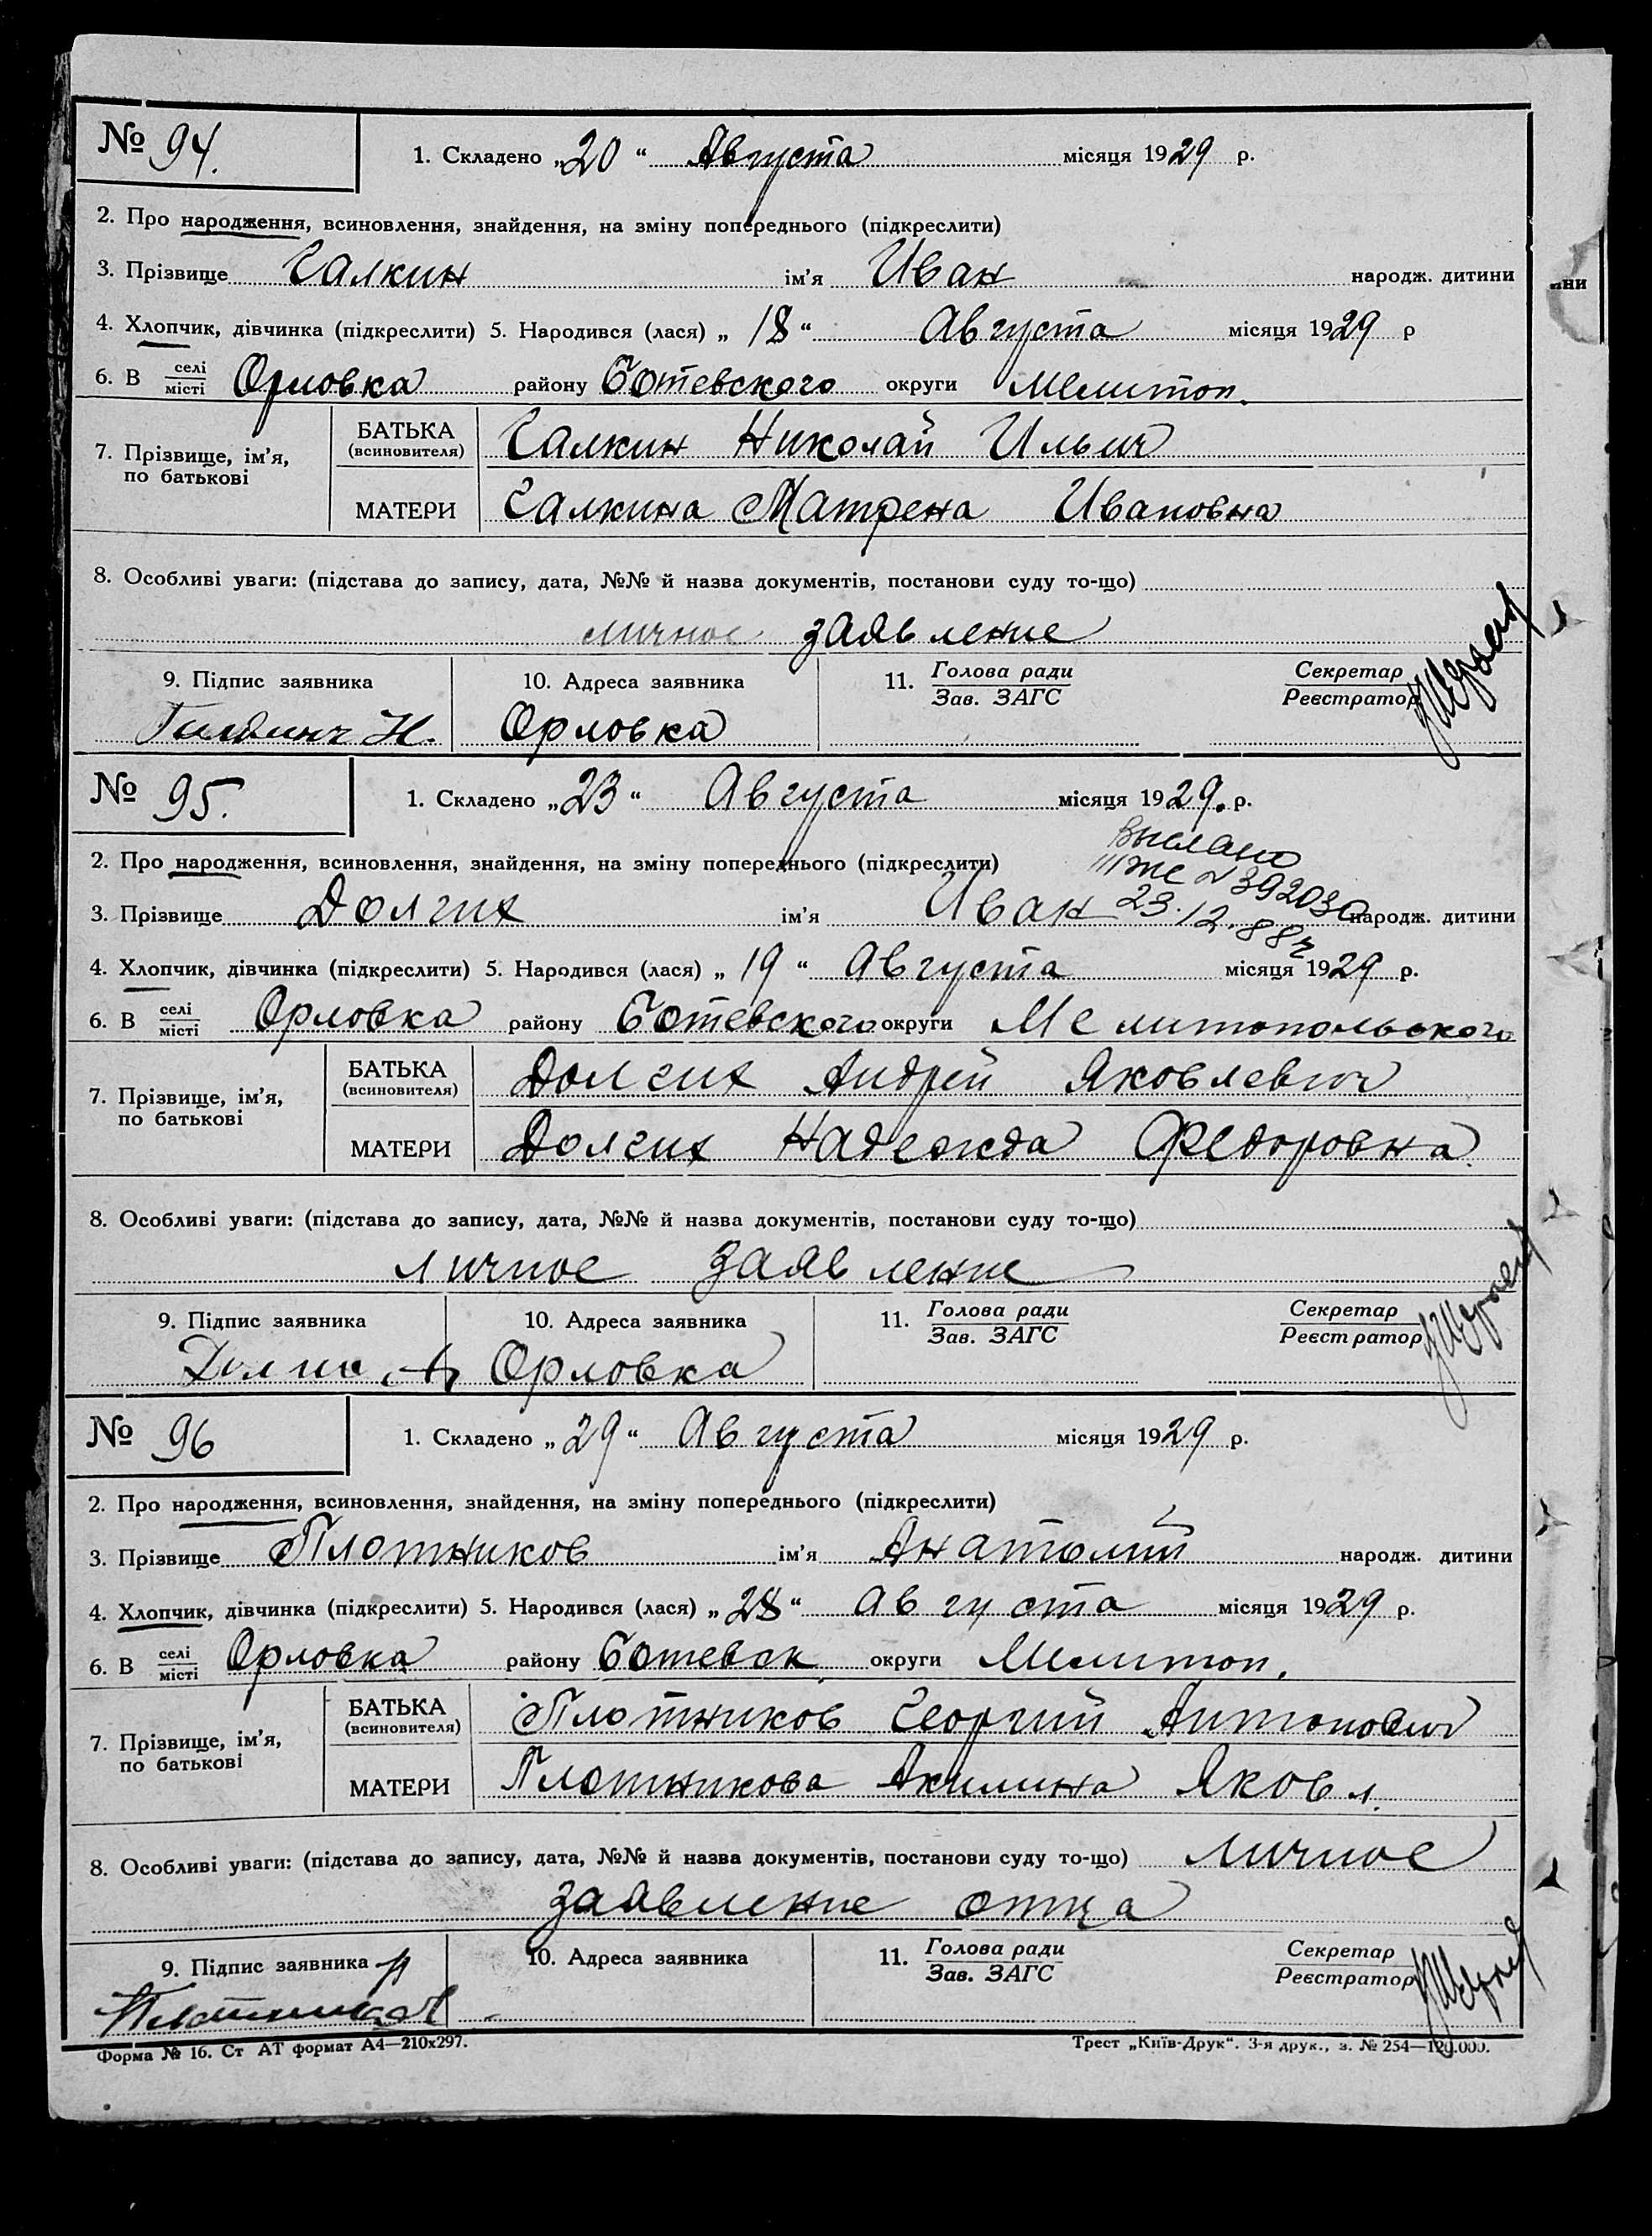 № 94. 1. Складено „20“ Августа місяця 1929 р.
2. Про народження, всиновлення, знайдення, на зміну попереднього (підкреслити)
3. Прізвище Галкин ім’я Иван народж. дитини
4. Хлопчик, дівчинка (підкреслити) 5. Народився (лася) „18“ Августа місяця 1929 р
6. В селі місті Орловка району Ботевского округи Мелитоп.
7. Прізвище, ім’я, по батькові
БАТЬКА (всиновителя) Галкин Николай Ильич
МАТЕРИ Галкина Матрена Ивановна
8. Особливі уваги: (підстава до запису, дата, №№ й назва документів, постанови суду то-що)
личное заявление
9. Підпис заявника 10. Адреса заявника 11. Голова ради Зав. ЗАГС Секретар Реєстратор
Н. Орловка
№ 95. 1. Складено „23“ Августа місяця 1929. р.
Выслано
2. Про народження, всиновлення, знайдення, на зміну попереднього (підкреслити)
N 392030
3. Прізвище Долгих ім’я Иван народж. дитини
23.12.88г
4. Хлопчик, дівчинка (підкреслити) 5. Народився (лася) „19“ Августа місяця 1929 р.
6. В селі місті Орловка району Ботевского округи Мелитопольского
7. Прізвище, ім’я, по батькові
БАТЬКА (всиновителя) Долгих Андрей Яковлевич
МАТЕРИ Долгих Надежда Федоровна
8. Особливі уваги: (підстава до запису, дата, №№ й назва документів, постанови суду то-що)
личное заявление
9. Підпис заявника 10. Адреса заявника 11. Голова ради Зав. ЗАГС Секретар Реєстратор
Орловка
№ 96 1. Складено „29“ Августа місяця 1929 р.
2. Про народження, всиновлення, знайдення, на зміну попереднього (підкреслити)
3. Прізвище Плотников ім’я Анатолий народж. дитини
4. Хлопчик, дівчинка (підкреслити) 5. Народився (лася) „28“ Августа місяця 1929 р.
6. В селі місті Орловка району Ботевск округи Мелитоп.
7. Прізвище, ім’я, по батькові
БАТЬКА (всиновителя) Плотников Георгий Антонович
МАТЕРИ Плотникова Акилина Яковл.
8. Особливі уваги: (підстава до запису, дата, №№ й назва документів, постанови суду то-що) личное
заявление отца
9. Підпис заявника 10. Адреса заявника 11. Голова ради Зав. ЗАГС Секретар Реєстратор
Плотников
Форма № 16. Ст АТ формат А4—210х297. Трест „Київ-Друк“. 3-я друк., з. № 254—120.000.